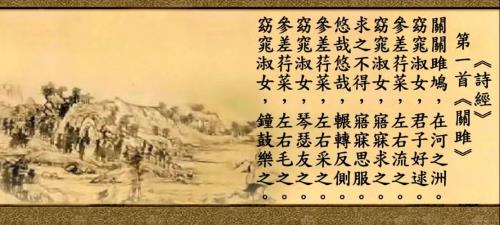 《詩經》
第一首《關雎》
關關雎鳩，在河之洲。
窈窕淑女，君子好逑。
參差荇菜，左右流之。
窈窕淑女，寤寐求之。
求之不得，寤寐思服。
悠哉悠哉，輾轉反側。
參差荇菜，左右采之。
窈窕淑女，琴瑟友之。
參差荇菜，左右毛之。
窈窕淑女，鐘鼓樂之。